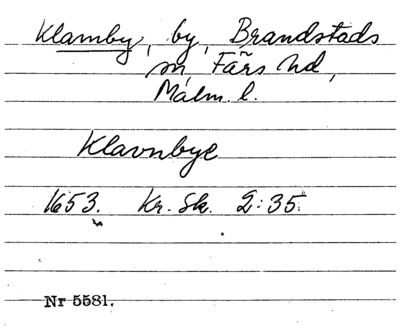 Klamby, by, Brandstads
sn, Färs hd,
Malm. l.
Klavnbye
1653. Kr. Sk. 2:35.
Nr 5581.